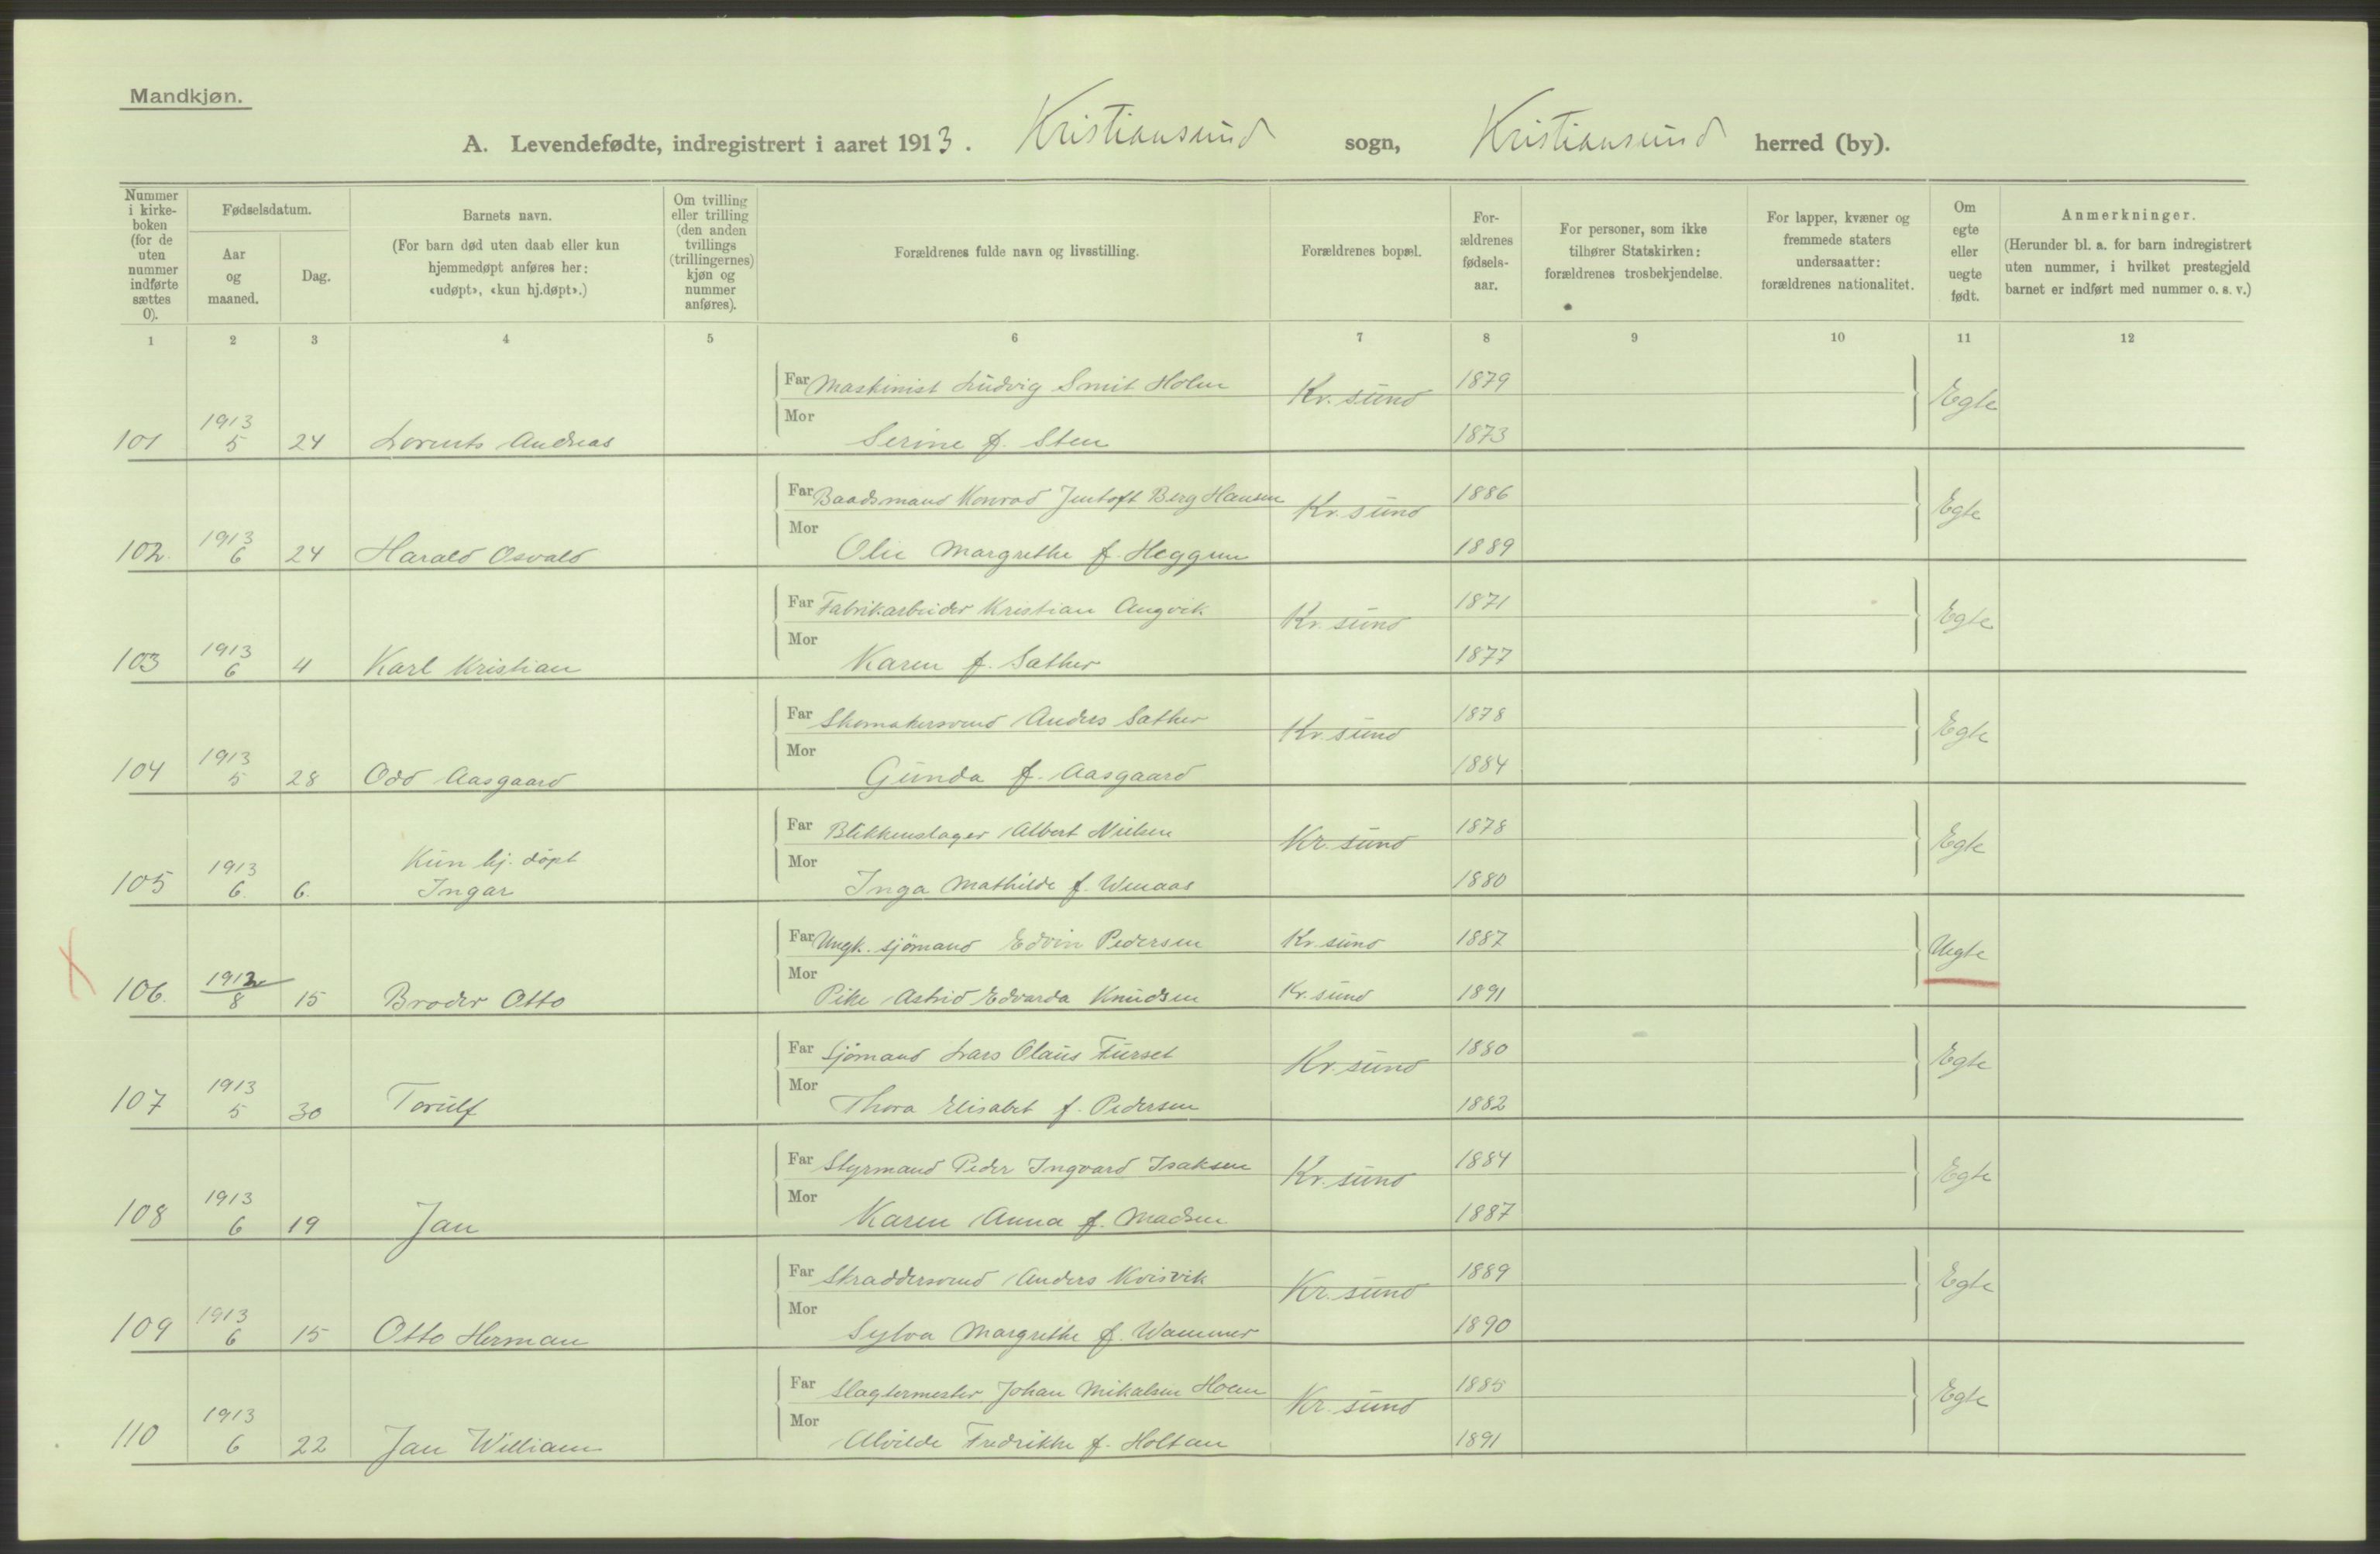 Mandkjøn.
A. Levendefødte, indregistrert i aaret 1913. Kristiansund sogn, Kristiansund herred (by).
Nummer i kirke-boken (for de uten nummer indførte sættes 0).
Fødselsdatum.
Aar og maaned.
Dag.
Barnets navn.
(For barn død uten daab eller kun hjemmedøpt anføres her: «udøpt», «kun hj.døpt».)
Om tvilling eller trilling (den anden tvillings (trillingernes) kjøn og nummer anføres).
Forældrenes fulde navn og livsstilling.
Forældrenes bopæl.
For-ældrenes fødsels-aar.
For personer, som ikke tilhører Statskirken: forældrenes trosbekjendelse.
For lapper, kvæner og fremmede staters undersaatter: forældrenes nationalitet.
Om egte eller uegte født.
Anmerkninger.
(Herunder bl. a. for barn indregistrert uten nummer, i hvilket prestegjeld barnet er indført med nummer o. s. v.)
1 2 3 4 5 6 7 8 9 10 11 12
Far Maskinist Ludvig Smit Holm Kr. sund 1879 Egte
101 1913 5 24 Lorents Andreas Mor Serine f. Sten 1873
Far Baadsmand Konrad Jentoft Berg Hansen Kr. sund 1886 Egte
102. 1913 6 24 Harald Osvald Mor Olie Margrethe f. Heggem 1889
Far Fabrikarbeider Kristian Angvik Kr. sund 1871 Egte
103 1913 6 4 Karl Kristian Mor Karen f. Sather 1877
Far Skomakersvend Anders Sather Kr. sund 1878 Egte
104 1913 5 28 Odd Aasgaard Mor Gunda f. Aasgaard 1884
Far Blikkenslager Albert Nielsen Kr. sund 1878 Egte
105 1913 6. 6. Kun hj. døpt Ingar Mor Inga Mathilde f. Wenaas 1880
Far Ungk. sjömand Edvin Pedersen Kr. sund 1887 Uegte
106. 1912 8 15 Broder Otto Mor Pike Astrid Edvarda Knudsen Kr. sund 1891
Far Sjömand Lars Olaus Furset Kr. sund 1880 Egte
107 1913 5 30 Torulf Mor Thora Elisabet f. Pedersen 1882
Far Styrmand Peder Ingvard Isaksen Kr. sund 1884 Egte
108 1913 6 19 Jan Mor Karen Anna f. Madsen 1887
Far Skraddersvend Anders Kvisvik Kr. sund 1889 Egte
109 1913 6 15 Otto Herman Mor Sylva Margrethe f. Wammer 1890
Far Slagtermester Johan Mikalsen Hoem Kr. sund 1885 Egte
110 1913 6 22 Jan William Mor Alvilde Fredrikke f. Holtan 1891